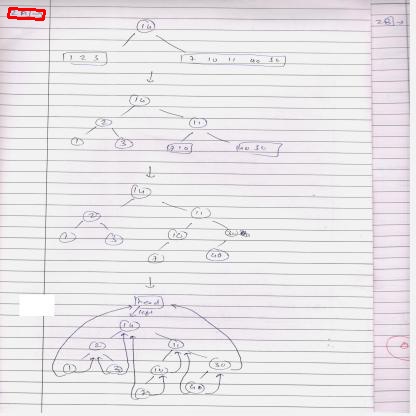 2 B] →
14
1 2 3 7 10 11 40 30
14
2 11
1 3 7 10 40 30
14
2 11
1 3 10
7 40
head
left
14
2 11
1 3 10 30
7 40
2 B] →